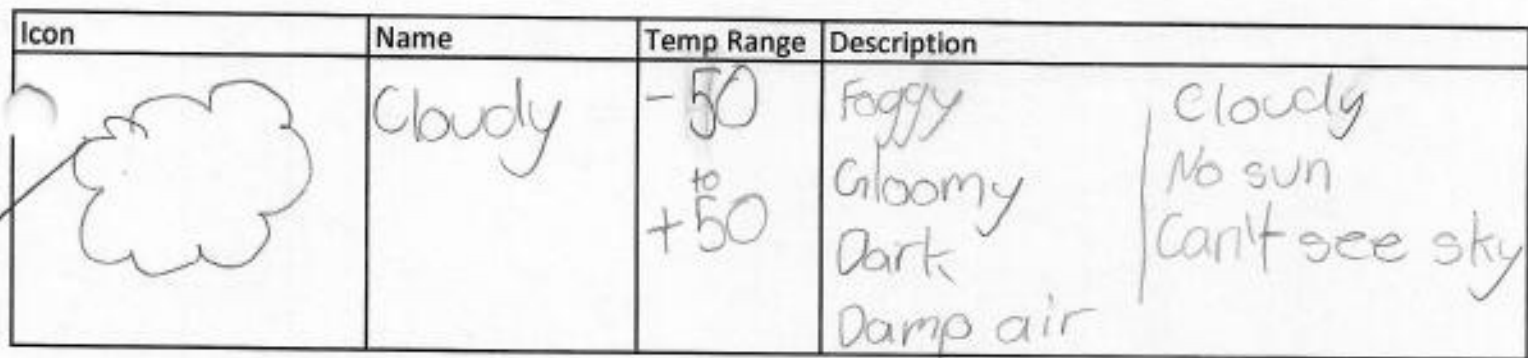 Icon Name Temp Range Description
Cloudy
-50
to
+50
Foggy
Gloomy
Dark
Damp air
Cloudy
No sun
Can't see sky